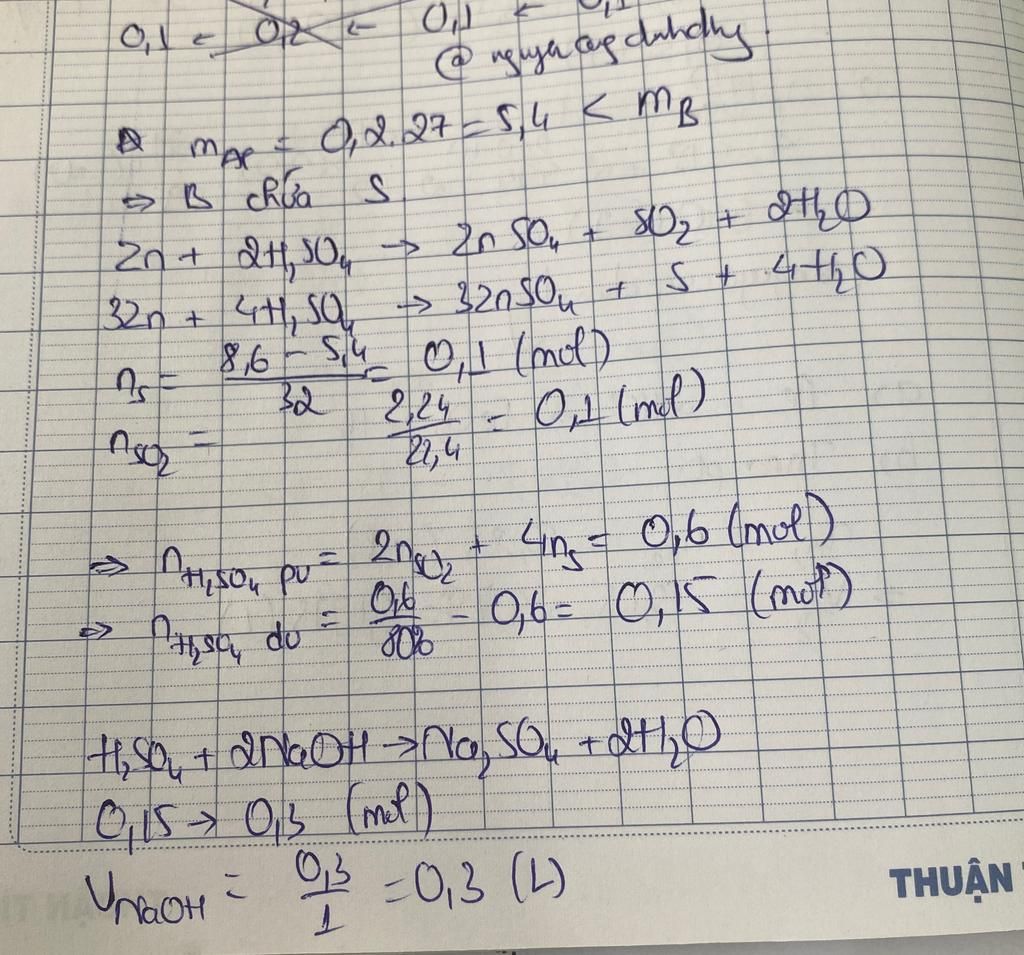 0,1 ← 0,2 ← 0,1 ← 0,1
@
m_Al = 0,2.27 = 5,4 < m_B
⇒ B chứa S
Zn + 2H₂SO₄ → ZnSO₄ + SO₂ + 2H₂O
3Zn + 4H₂SO₄ → 3ZnSO₄ + S + 4H₂O
n_S = (8,6 - 5,4)/32 = 0,1 (mol)
n_SO₂ = 2,24/22,4 = 0,1 (mol)
⇒ n_H₂SO₄ pư = 2n_SO₂ + 4n_S = 0,6 (mol)
⇒ n_H₂SO₄ dư = 0,6/80% - 0,6 = 0,15 (mol)
H₂SO₄ + 2NaOH → Na₂SO₄ + 2H₂O
0,15 → 0,3 (mol)
V_NaOH = 0,3/1 = 0,3 (L)
THUẬN